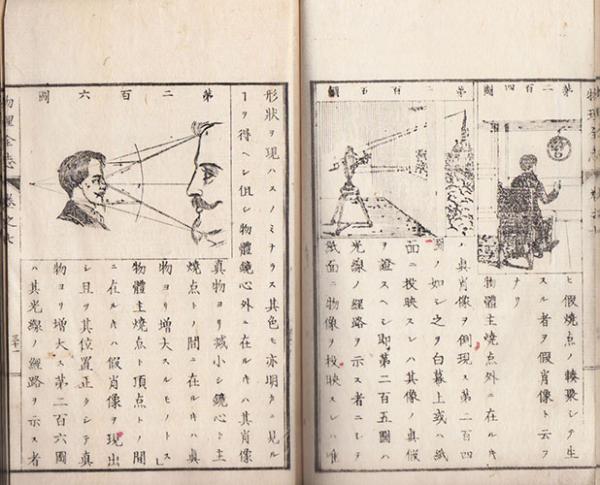 第二百四圖
ヒ假燒点ノ輳聚シテ生
スル者ヲ假肖像ト云フ
ナリ
第二百五圖
物體主燒点外ニ在ルキ
ハ真肖像ヲ倒現ス第二百四
圖ノ如シ之ヲ白幕上或ハ紙
面ニ投映スレハ其像ノ真假
ヲ證スヘシ即第二百五圖ハ
光線ノ經路ヲ示ス者ニシテ
紙面ニ物像ヲ投映スレハ唯
形狀ヲ現ハスノミナラス其色モ亦明カニ見ル
ヿヲ得ヘシ但シ物體鏡心外ニ在ルキハ其肖像
第二百六圖
真物ヨリ減小シ鏡心ト主
燒点トノ間ニ在ルキハ真
物ヨリ增大スルモノトス
物體主燒点ト頂点トノ間
ニ在ルキハ假肖像ヲ現出
シ且ヲ其位置正クシテ真
物ヨリ增大ス第二百六圖
ハ其光線ノ經路ヲ示ス者
物理全志